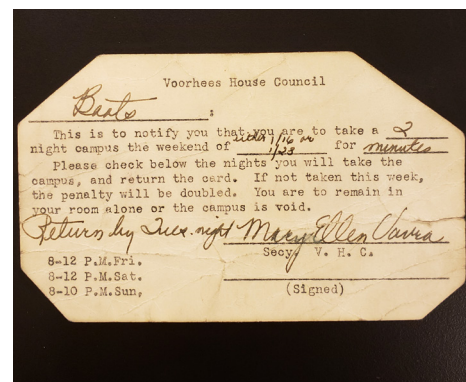 Voorhees House Council
Boots :
This is to notify you that you are to take a 2
night campus the weekend of either 1/16 or 1/23 for minutes
Please check below the nights you will take the
campus, and return the card. If not taken this week,
the penalty will be doubled. You are to remain in
your room alone or the campus is void.
Return by Tues. night Mary Ellen Vavra
Secy. V. H. C.
8-12 P.M.Fri.
8-12 P.M.Sat.
8-10 P.M.Sun,
(Signed)